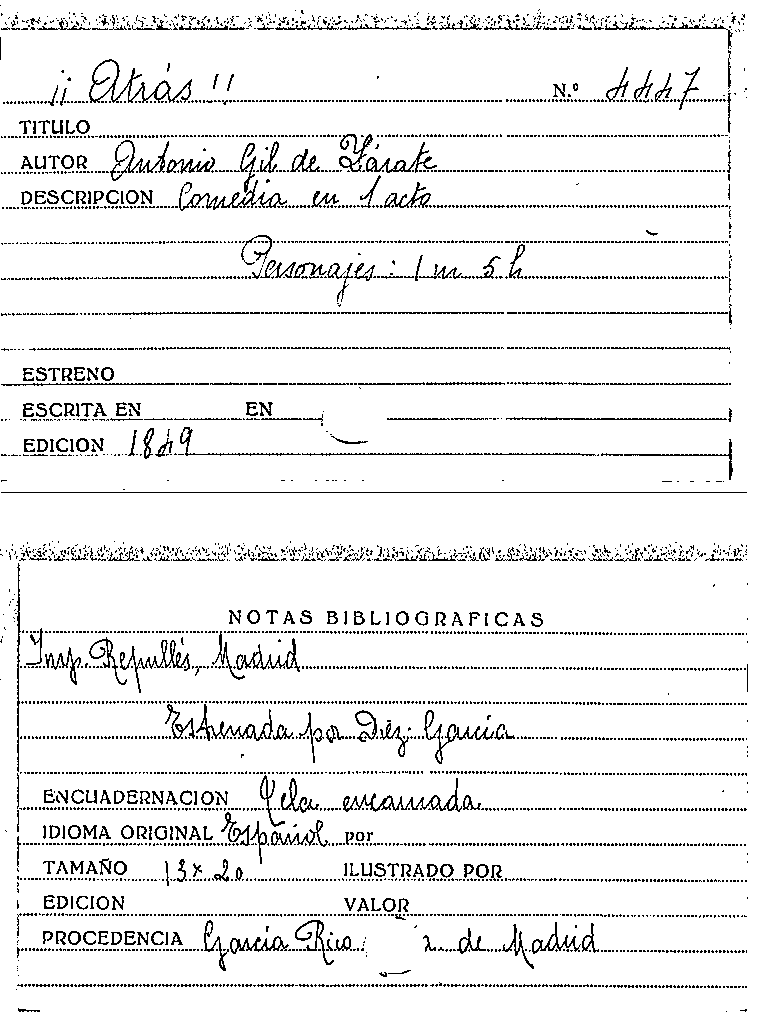 ¡¡ Atrás !! N.º 4447
TITULO
AUTOR Antonio Gil de Zárate
DESCRIPCION Comedia en 1 acto
Personajes: 1 m 5 h
ESTRENO
ESCRITA EN EN
EDICION 1849
NOTAS BIBLIOGRAFICAS
Imp. Repullés, Madrid
Estrenada por Diez: García
ENCUADERNACION Tela encarnada
IDIOMA ORIGINAL Español por
TAMAÑO 13 x 20 ILUSTRADO POR
EDICION VALOR
PROCEDENCIA García Rico de Madrid